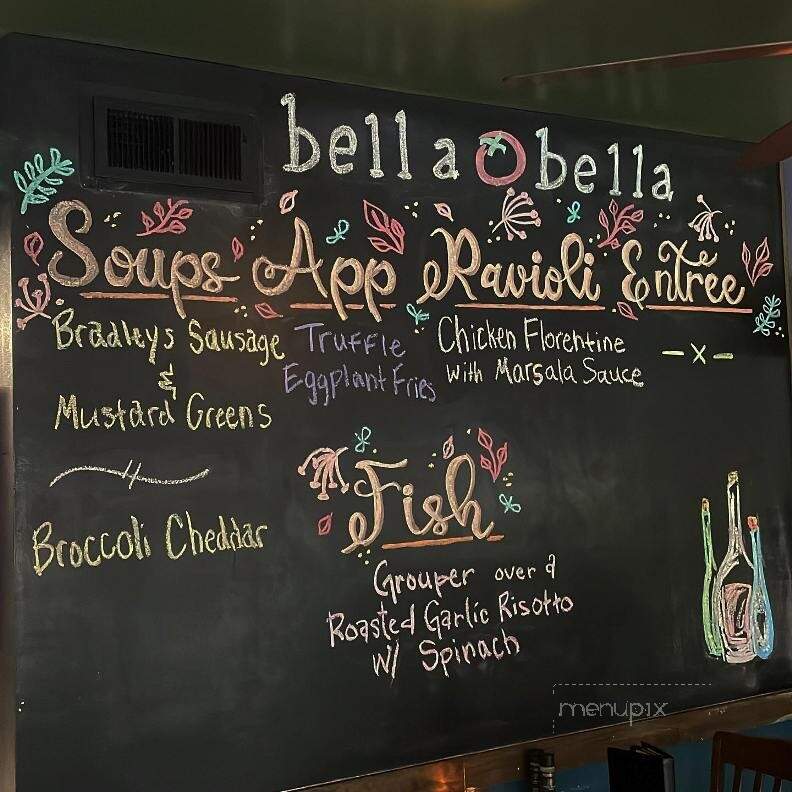 bella bella
Soups
Bradleys Sausage
&
Mustard Greens
Broccoli Cheddar
App
Truffle
Eggplant Fries
Ravioli
Chicken Florentine
with Marsala Sauce
Entree
- x -
Fish
Grouper over a
Roasted Garlic Risotto
w/ Spinach
menupix